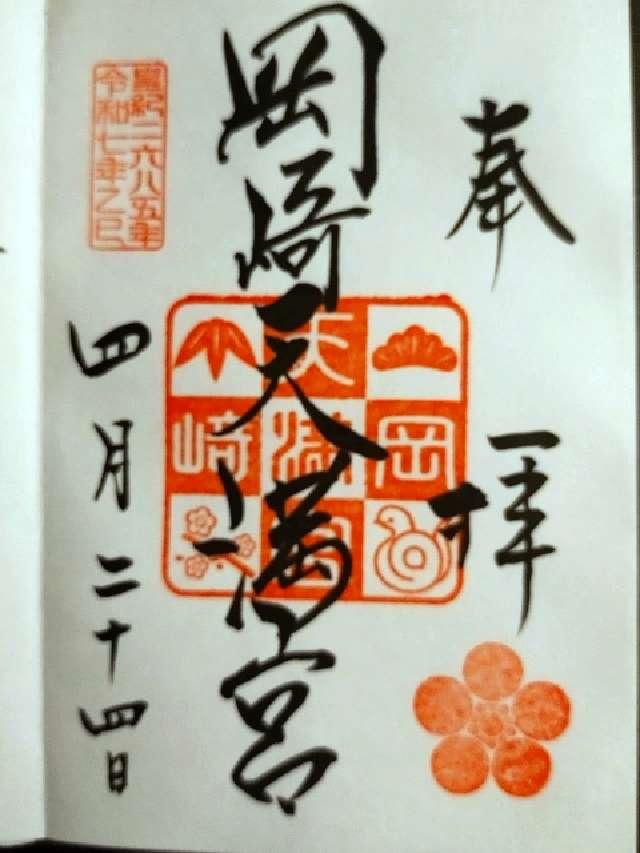 奉拝
岡崎天満宮
岡崎
天満宮
皇紀二六八五年
令和七年乙巳
四月二十四日